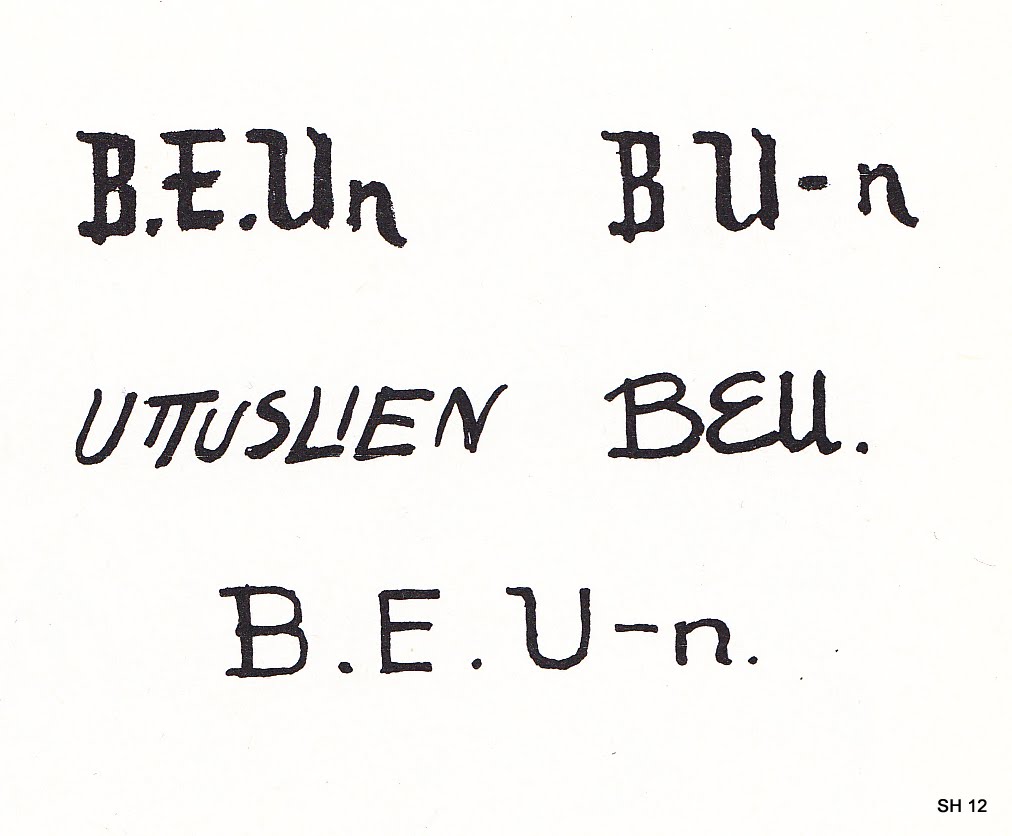 B.E.Un B U-n
UTTUSLIEN BEU.
B.E.U-n.
SH 12